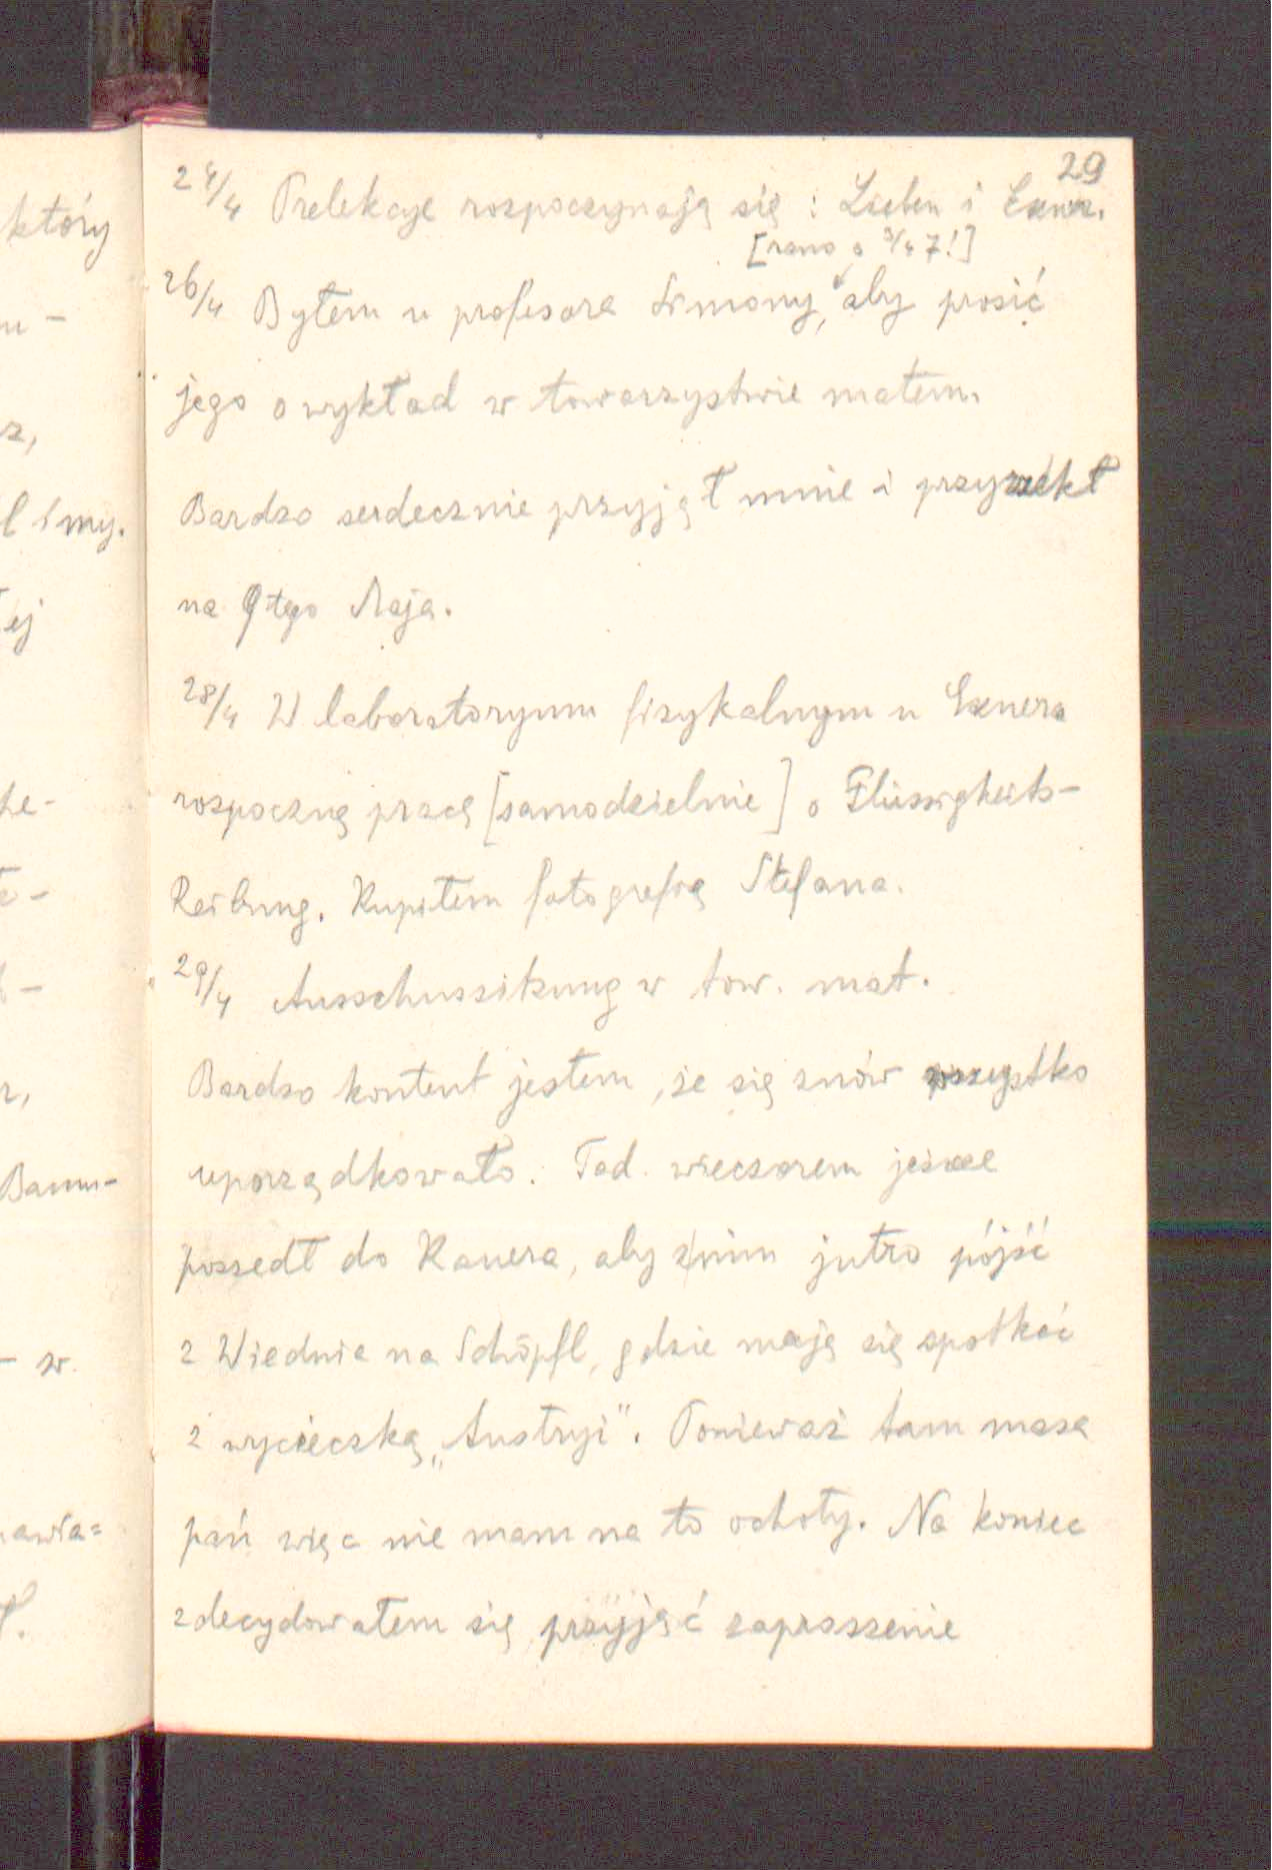 który
u-
z,
ł i my.
ej
że-
te-
r,
Bann-
- w.
nawia=
ł.
29
24/4 Prelekcye rozpoczynają się : Lieben i Exner.
[rano o 3/4 7!]
26/4 Byłem u profesora Simony, aby prosić
jego o wykład w towarzystwie matem.
Bardzo serdecznie przyjął mnie i przyrzekł
na 9tego Maja.
28/4 W laboratoryum fizykalnym u Exnera
rozpocznę pracę [samodzielnie] o Flüssigkeits-
Reibung. Kupiłem fotografię Stefana.
29/4 Ausschussitzung w tow. mat.
Bardzo kontent jestem, że się znów wszystko
uporządkowało. Tad. wieczorem jeszcze
poszedł do Kanera, aby z nim jutro pójść
z Wiednia na Schöpfl, gdzie mają się spotkać
z wycieczką „Austryi". Ponieważ tam masa
pań więc nie mam na to ochoty. Na koniec
zdecydowałem się przyjąć zaproszenie